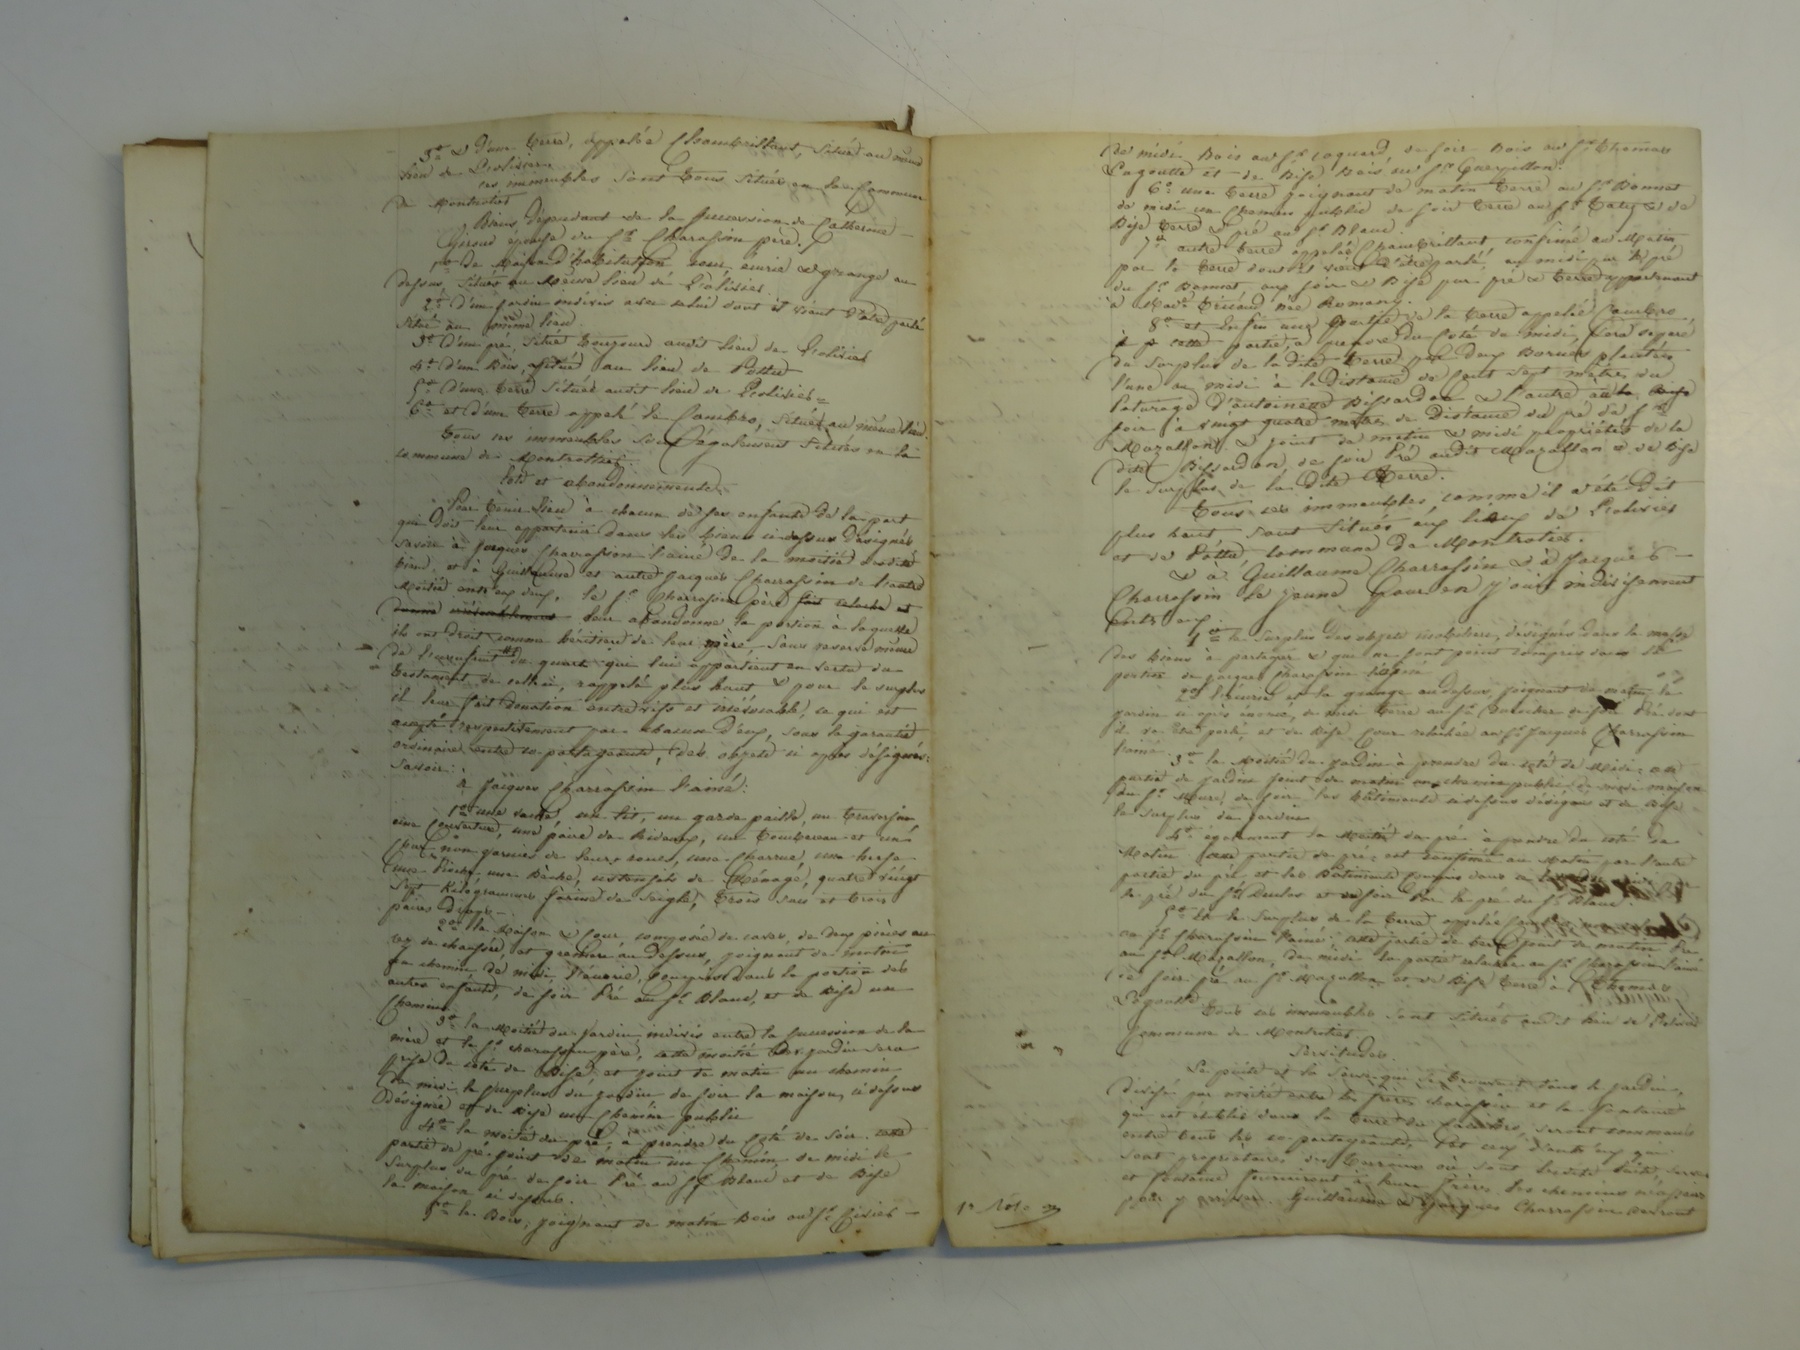 3º & D'une terre, appelée Chambrillant, située au même
lieu de Lolivier
ces immeubles sont tous situés en la Commune
de Montrotier
Biens dépendant de la succession de Catherine
Giroud épouse du Sr Charassin père.
1º De Maison d'habitation cour, écurie & grange au
dessus, situés au même lieu de Lolivier.
2º D'un jardin indivis avec celui dont il vient d'être parlé
situé au même lieu
3º D'un pré, situé toujours audit lieu de Lolivier
4º D'un Bois, situé au lieu de Pottu
5º D'une terre située audit lieu de Lolivier
6º et D'une terre appelé le Cambre, située au même lieu.
tous ces immeubles sont également situés en la
commune de Montrottier.
lots et abandonnements.
Pour tenir lieu à chacun de ses enfants de la part
qui doit leur appartenir dans les biens ci-dessus désignés
savoir à Jacques Charrassin l'ainé de la moitié desdits
biens, et à Guillaume et autre Jacques Charrassin de l'autre
moitié entr'eux deux, le Sr Charrassin père fait relache et
donne leur abandonne la portion à laquelle
ils ont droit comme héritiers de leur mère, sans réserve même
de l'usufruit du quart qui lui appartient en vertu du
testament de celle-ci, rappelé plus haut & pour le surplus
il leur fait donation entre vifs et irrévocable, ce qui est
accepté respectivement par chacun d'eux, sous la garantie
ordinaire entre co-partageants, des objets ci après désignés:
savoir:
A Jacques Charrassin l'ainé:
1º une vache, un lit, un garde paille, un traversin,
une couverture, une paire de Rideaux, un tombereau et un
char non garnis de leurs roues, une charrue, une herse
une une Bêche, ustensiles de Ménage, quatre vingt
sept Kilogrammes farine de Seigle, trois sacs et trois
paires draps.
2º la Maison & four composée de caves, de deux pièces au
rez de chaussée, et greniers au dessus, joignant de matin
un chemin de midi, l'écurie, compris dans la portion des
autres enfants, de soir Pré au Sr Blanc, et de Bise un
Chemin.
3º la Moitié du Jardin indivis entre la succession de la
mère et le Sr Charassin père, cette moitié de jardin sera
prise du coté de Bise, et joint de matin un chemin
de midi le surplus du jardin de soir la maison, ci dessus
désignée et de Bise un chemin public
4º la moitié du pré, à prendre du Coté de soir. cette
partie de pré joint de matin un Chemin, de midi le
surplus du pré de soir Pré au Sr Blanc et de Bise
la maison ci dessus.
5º le Bois, joignant de matin Bois au Sr
de midi Bois au Sr Coquard de soir Bois au Sr Thomas
Lagoutte et de Bise Bois au Sr Guerpillon.
6º une terre joignant de matin terre au Sr Bonnet
de midi un Chemin public de soir terre au Sr & de
Bise terre & pré au Sr Blanc.
7º autre terre appelée Chambrillant, confinée au Matin
par la terre dont il vient d'être parlé, au midi par le pré
du Sr Bonnet aux soir & Bise par pré & terre appartenant
à Made Tricaud née Romany.
8º et Enfin une partie de la terre appelée Cambre
cette partie, à prendre du Coté de midi, sera séparé
du surplus de la dite terre par deux Bornes plantées
l'une au midi à la distance de sept mètres du
paturage d'antoinette Bissardon & l'autre au
soir à vingt quatre mètres de Distance du pré de Sr
Mazallon & joint de matin & midi propriétés de la
dite Bissardon, de soir Pré audit Mazallon & de Bise
le surplus de la dite terre.
tous ces immeubles, comme il a été dit
plus haut sont situés aux lieux de Lolivier
et de Pottu, commune de Montrotier.
& à Guillaume Charrassin & à Jacques
Charrassin le jeune pour en jouir indivisément
Entr'eux
1º le surplus des objets mobiliers, désignés dans la masse
des biens à partager & que ne sont point compris dans la
portion de Jacques Charassin l'ainé
2º l'écurie et la grange au dessus, joignant de matin le
jardin ci après énoncé, de midi terre au Sr de soir Pré dont
il va être parlé, et de Bise Cour relachée au Sr Jacques Charrassin
l'ainé.
3º la Moitié du jardin à prendre du coté de Midi: cette
partie de jardin joint de matin un chemin public, de midi maison
du Sr Mure, de soir les bâtiments ci-dessus désignés et de Bise
le surplus du jardin
4º également la Moitié du pré à prendre du coté de
Matin cette partie de pré est confinée au Matin par l'autre
partie du pré et les Bâtiments compris dans
le pré du Sr Duclos et de soir Par le pré du Sr Blanc.
5º le surplus de la terre appelée
au Sr Charassin l'ainé; cette partie de terre joint de matin Pré
au Sr Mazallon, de midi la partie relachée au Sr Charassin l'ainé
de soir pré au Sr Mazallon, et de Bise terre à Thomas
Lagoutte
tous ces immeubles sont situés audit lieu de Lolivier
commune de Montrotier
Servitudes.
Le puits et la Serve qui se trouvent dans le jardin,
divisé par moitié entre les frères Charassin et la fontaine
qui est établie dans la terre du Cambre, seront communs
entre tous les co-partageants, et ceux d'entr'eux qui
sont propriétaires des terrains où sont lesdits puits, serve
et fontaine fourniront à leurs frères les chemins nécessaires
pour y arriver. Guillaume & Jacques Charrassin devront